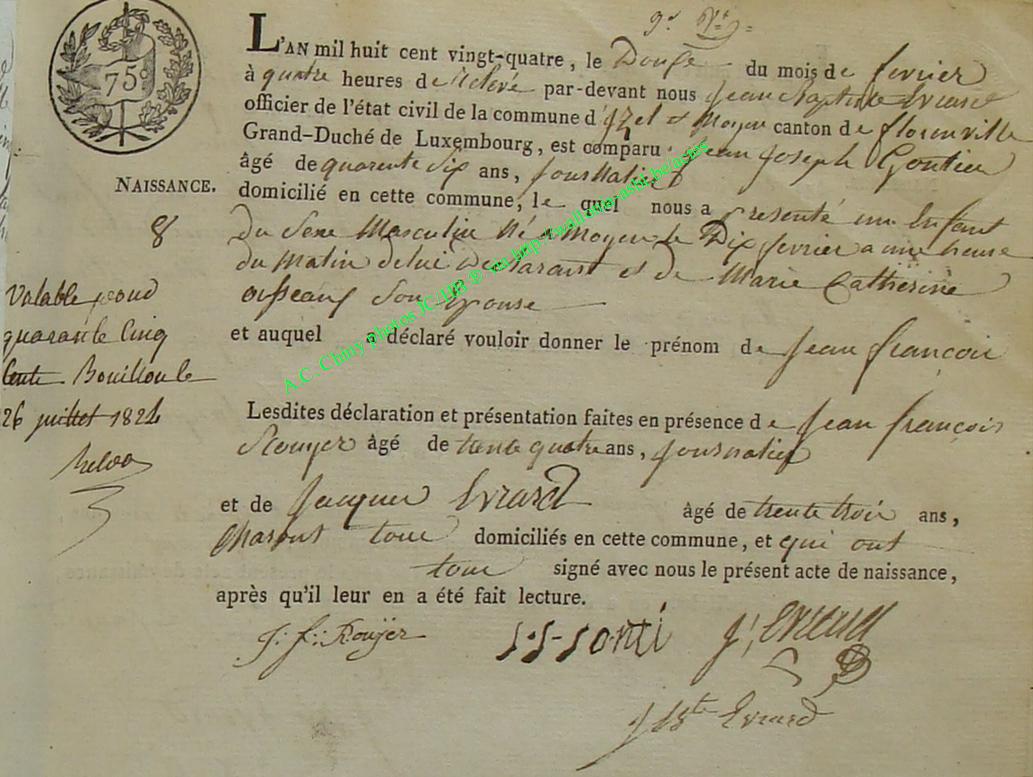 75c
L'AN mil huit cent vingt-quatre, le Douze du mois de fevrier
à quatre heures de Relevé par-devant nous Jean Baptiste Evrard
officier de l'état civil de la commune d'Izel et Moyen canton de florenville
Grand-Duché de Luxembourg, est comparu Jean Joseph Gontier
âgé de quarente Six ans, Journalier
NAISSANCE.
domicilié en cette commune, le quel nous a presenté un Enfant
8
du Sexe Masculin Né a Moyen le Dix fevrier a une heure
du Matin de lui Declarant et de Marie Catherine
Son Epouse
Valable pour
quarante Cinq
Cents Bouillon le
26 juillet 1824
et auquel a déclaré vouloir donner le prénom de Jean françois
Lesdites déclaration et présentation faites en présence de Jean françois
Rouyer âgé de trente quatre ans, Journalier
et de Jacques Evrard âgé de trente trois ans,
Charont tous domiciliés en cette commune, et qui ont
tous signé avec nous le présent acte de naissance,
après qu'il leur en a été fait lecture.
J: f: Rouÿer J-J-Gonti J, Evrard
J Bte Evrard
A.C. Chiny photos JC/HB ® vu http://wallonia-asbl.be/actes